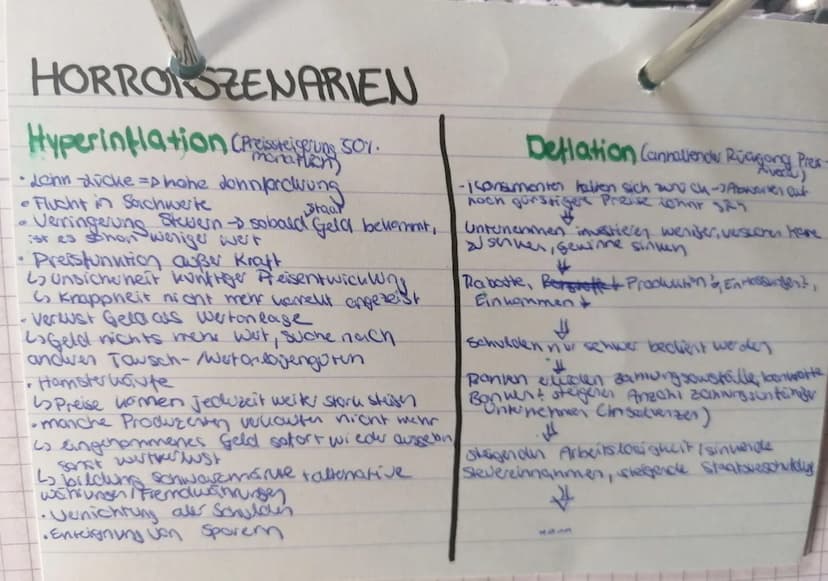 HORRORSZENARIEN
Hyperinflation (Preissteigerung 50%
monatlich)
• Lohn-Lücke => hohe Lohnforderung
• Flucht in Sachwerte
• Verringerung Steuern -> sobald Staat Geld bekommt,
ist es schon weniger wert
• Preisfunktion außer Kraft
↳ Unsicherheit künftiger Preisentwicklung
↳ Knappheit nicht mehr korrekt angezeigt
• Verlust Geld als Wertanlage
↳ Geld nichts mehr wert, suche nach
anderen Tausch-/Wertanlagengütern
• Hamsterkäufe
↳ Preise können jederzeit weiter stark steigen
• manche Produzenten verkaufen nicht mehr
↳ eingenommenes Geld sofort wieder ausgeben
sonst Wertverlust
↳ bildung Schwarzmärkte + alternative
währungen/Fremdwährungen
• Vernichtung aller Schulden
• Enteignung von Sparern
Deflation (anhaltender Rückgang Preis-
niveau)
- Konsumenten halten sich zurück -> Abwarten auf
noch günstigere Preise lohnt sich
⇓
Unternehmen investieren weniger, versuchen
zu senken, Gewinne sinken
⇓
Rabatte, Produktion ↓, Entlassungen ↑,
Einkommen ↓
⇓
Schulden nur schwer bedient werden
⇓
Banken erleiden Zahlungsausfälle, bankrotte
Banken + steigende Anzahl zahlungsunfähiger
Unternehmen (Insolvenzen)
⇓
steigenden Arbeitslosigkeit/sinkende
Steuereinnahmen, steigende Staatsverschuldung
⇓
....